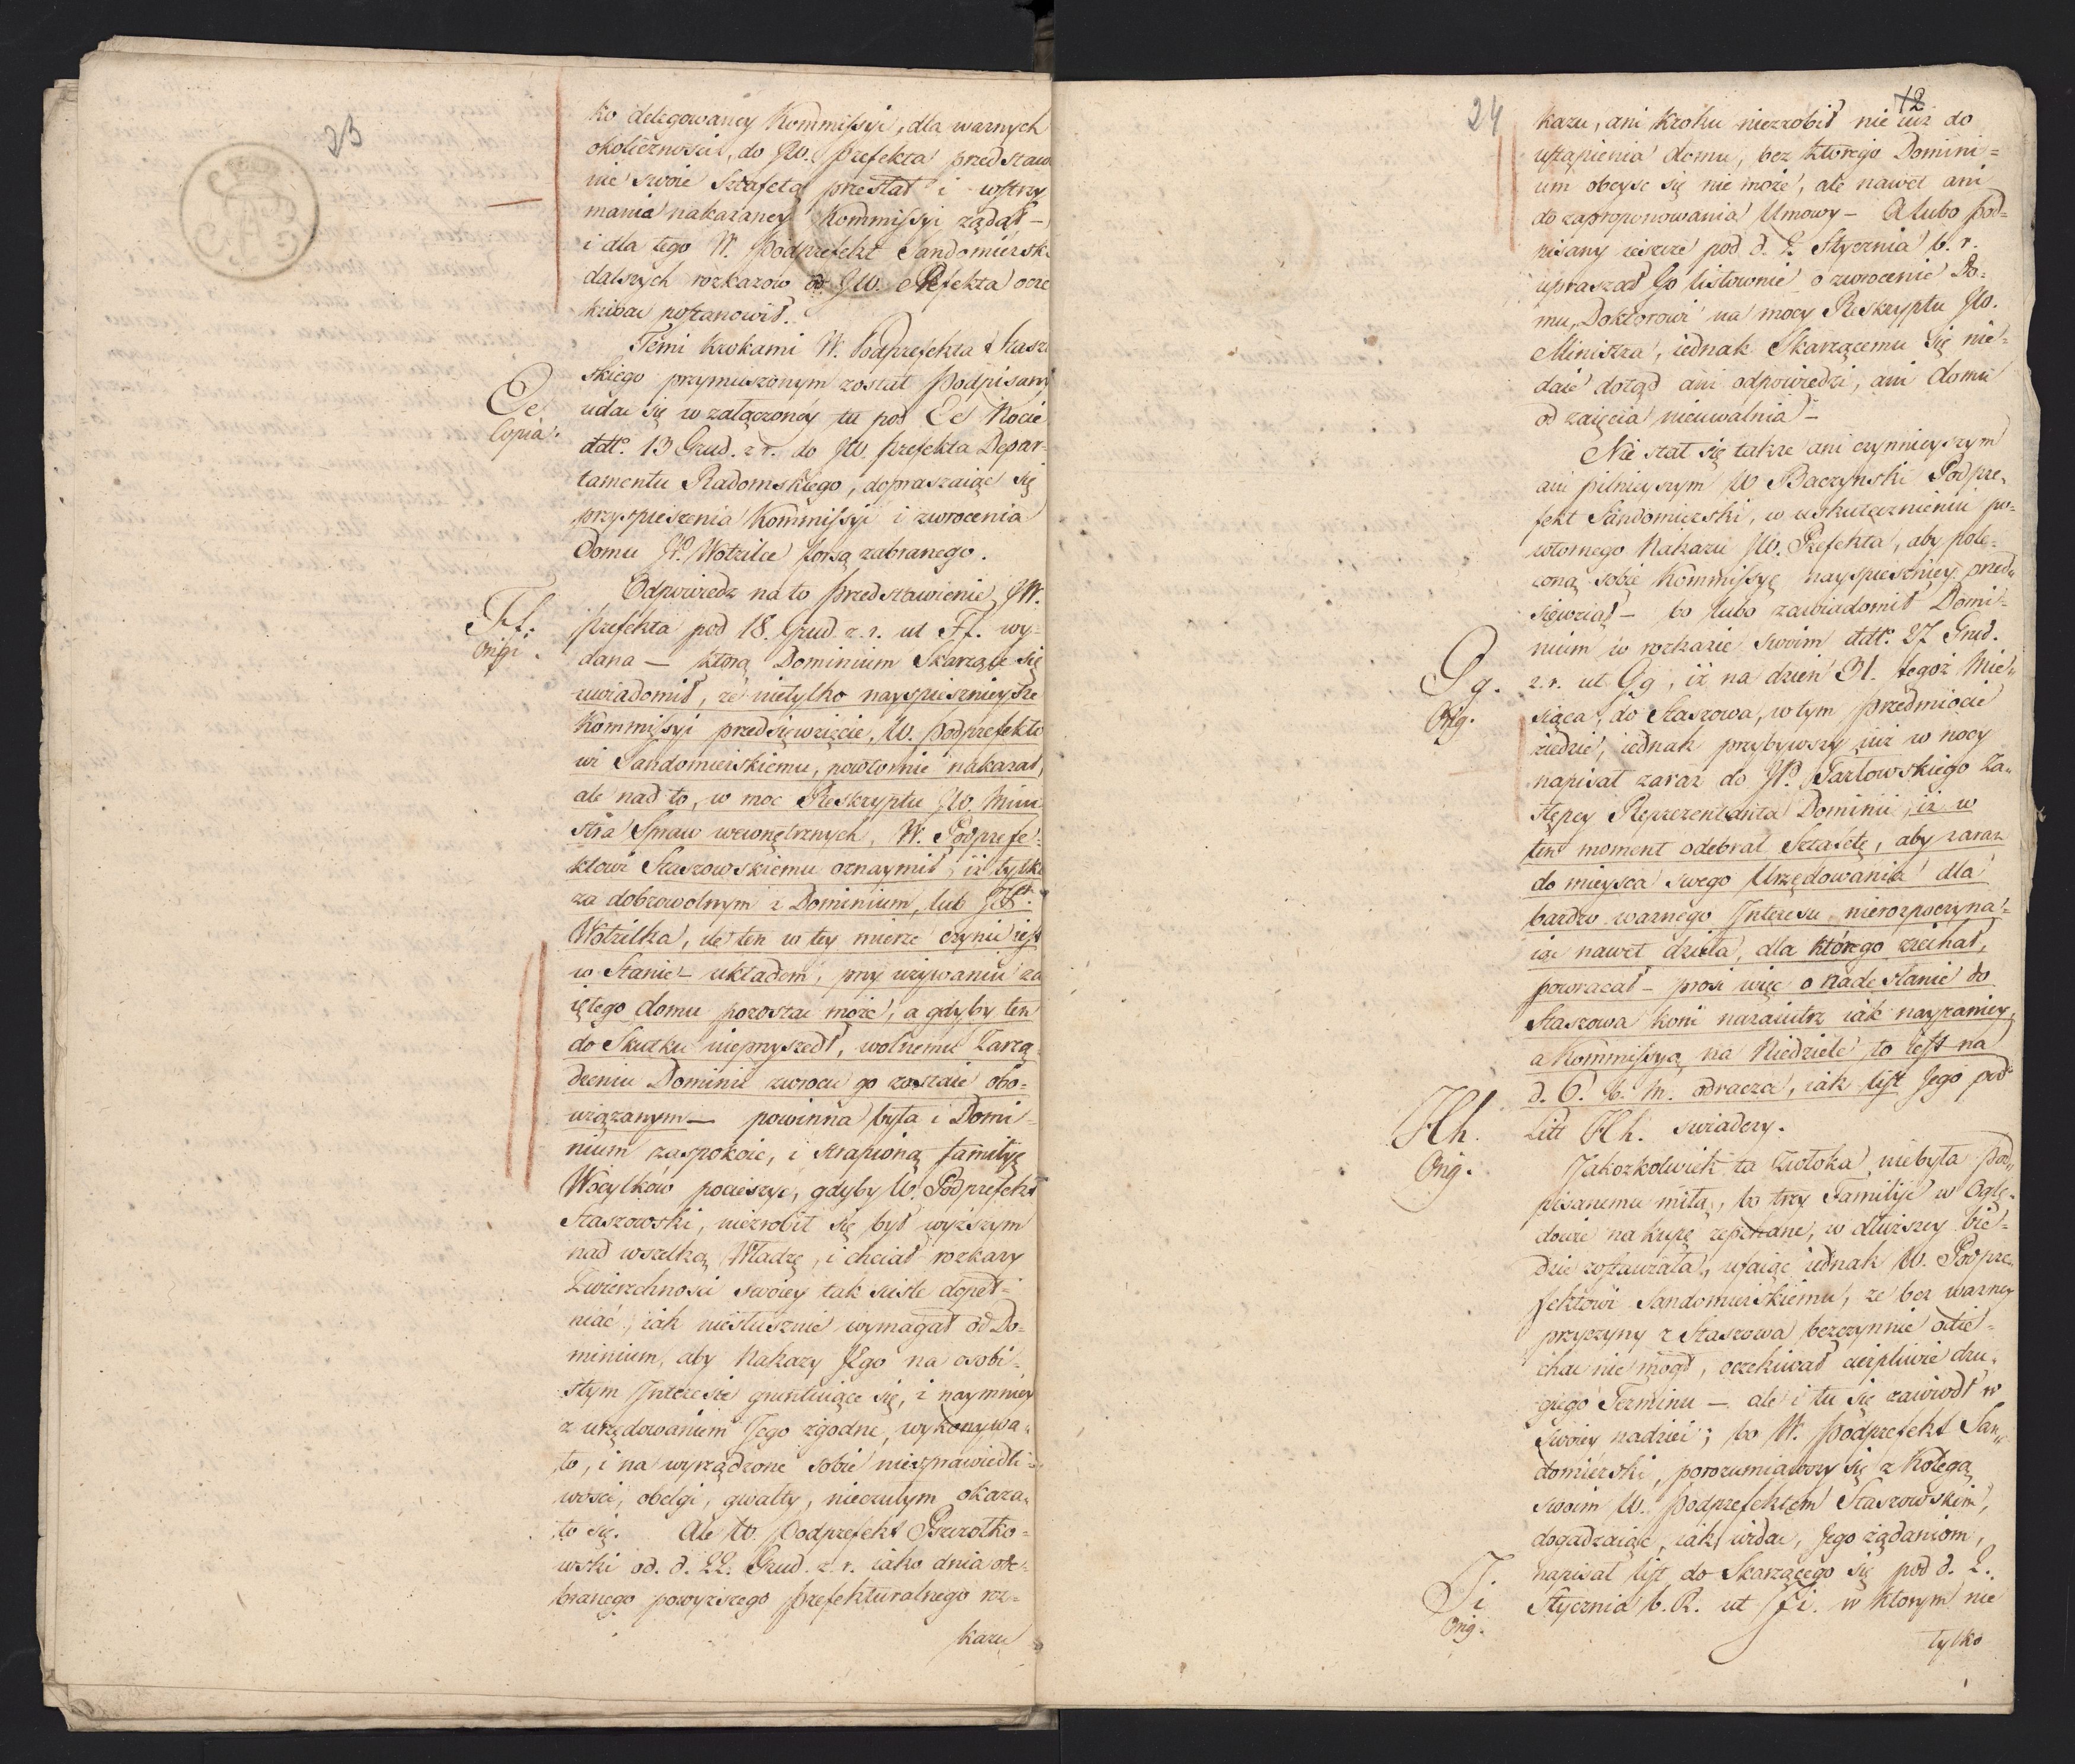 23
ko delegowaney Kommissyi, dla warnych
okoliczności, do JW. Prefekta przedstaw
nie swoie Sztafetą przesłał i wstrzy
mania nakazaney Kommissyi żądał –
i dla tego W. Podprefekt Sandomiersk
dalszych rozkazów od JW. Prefekta ocze
kiwać postanowił.
Temi krokami W. Podprefekta Stasz
skiego przymuszonym został Podpisany
Ee
udać się w załączoney tu pod Ee Nocie
Copia.
ddto. 13 Grud. z. r. do JW. Prefekta Depar-
tamentu Radomskiego, dopraszaiąc się
przyspieszenia Kommissyi i zwrocenia
Domu JP. Wotzilce forsą zabranego.
Odpowiedz na to Przedstawienie JW.
Ff.
Prefekta pod 18. Grud. z. r. ut Ff. wy-
Origi.
dana — którą Dominium Skarżące się
uwiadomił, że nietylko nayspieszniejsze
Kommissyi przedsięwzięcie, W. Podprefekto
wi Sandomierskiemu, powtornie nakazał,
ale nad to, w moc Reskryptu JW. Mini
stra Spraw wewnętrznych, W. Podprefe-
ktowi Staszowskiemu oznaymił, iż tylko
za dobrowolnym z Dominium, lub JP.
Wotzilką, ile ten w tey mierze czynić iest
w Stanie – układem, przy używaniu za
iętego domu pozostać może, a gdyby ten
do Skutku nieprzyszedł, wolnemu Zarzą-
dzeniu Dominii zwrocić go zostaie obo-
wiązanym — powinna była i Domi-
nium zaspokoić, i strapioną familyę
Wocylków pocieszyć, gdyby W. Podprefekt
Staszowski, niezrobił się był wyższym
nad wszelką Władzę, i chciał rozkazy
Zwierzchności swoiey tak ściśle dopeł-
niać, iak niesłusznie wymagał od Do-
minium, aby Nakazy Jego na osobi-
stym Interesie gruntuiące się, i naymniey
z urzędowaniem Jego zgodne, wykonywa-
ło, i na wyrządzone sobie niesprawiedli-
wości, obelgi, gwałty, nieczułym okaza-
ło się. Ale W. Podprefekt
wski od. d. 22. Grud. z. r. iako dnia ode-
branego powyższego Prefekturalnego roz-
kazu
24
12
kazu, ani kroku niezrobił nie iuż do
ustąpienia domu, bez którego Domini=
um obeyść się nie może, ale nawet ani
do zaproponowania Umowy – A lubo Pod=
pisany ieszcze pod d. 2. Stycznia b. r.
upraszał Go listownie o zwrocenie Do=
mu, Doktorowi na mocy Reskryptu JW.
Ministra, iednak Skarżącemu się nie-
daie dotąd ani odpowiedzi, ani domu
od zaięcia nieuwalnia –
Nie stał się także ani czynnieyszym
ani pilnieyszym W Baczynski Podpre-
fekt Sandomierski, w uskutecznieniu po-
wtornego Nakazu JW. Prefekta, aby pole-
coną sobie Kommissyę nayspieszniey przed-
sięwziął – bo lubo zawiadomił Domi-
nium w rozkazie swoim ddto. 27 Grud.
Gg.
z. r. ut Gg, iż na dzień 31. tegoż Mie-
Orig.
siąca, do Staszowa, w tym przedmiocie
ziedzie, iednak przybywszy iuż w nocy
napisał zaraz do JP. Tarłowskiego Za-
stępcy Reprezentanta Dominii, iż w
ten moment odebrał Sztafetę, aby zaraz
do mieysca swego Urzędowania dla
bardzo warnego Interesu, nierozpoczyna-
iąc nawet dzieła, dla którego ziechał,
powracał – prosi więc o nadesłanie do
Staszowa koni nazaiutrz iak nayraniey,
a Kommissyą na Niedzielę to iest na
d. 6. b. m. odracza, iak list Jego pod
Hh.
Litt Hh. świadczy.
Orig.
Jakożkolwiek ta zwłoka niebyła pod-
pisanemu miłą, bo trzy Familije w Oglę-
dowie na kupę zepchane, w dłuższey bie-
dzie zostawiała, ufaiąc iednak W. Podpre-
fektowi Sandomierskiemu, że bez warney
przyczyny z Staszowa bezczynnie odie-
chać nie mógł, oczekiwał cierpliwie dru-
giego Terminu — ale i tu się zawiodł w
swoiey nadziei; bo W. Podprefekt San-
domierski, porozumiawszy się z Kolegą
swoim W. Podprefektem Staszowskim,
dogadzaiąc, iak widać, Jego żądaniom,
Ji
napisał list do Skarżącego się pod d. 2.
Orig.
Stycznia b. R. ut Ji. w ktorym nie
tylko